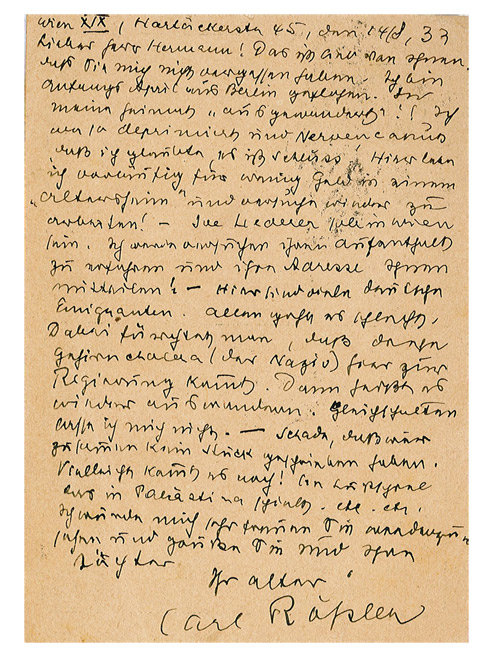 Wien XIX, Hartäckerstr 45, den 14/8, 33
Lieber Herr Hermann! Das ist lieb von Ihnen.
daß Sie mich nicht vergessen haben. Ich bin
Anfangs April aus Berlin geflohen. In
meine Heimat „ausgewandert“! Ich
war so deprimiert und Nervenkrank
daß ich glaubte, es ist Schluss! Hier lebe
ich vorläufig für wenig Geld in einem
„Altersheim“ und versuche wieder zu
arbeiten! – Joe Lederer soll in Wien
sein. Ich werde versuchen ihren Aufenthalt
zu erfahren und ihre Adresse Ihnen
mitteilen! – Hier sind viele deutsche
Emigranten. Allen geht es schlecht.
Dabei fürchtet man, daß diese
Gehirncholera (der Nazis) hier zur
Regierung kommt. Dann heißt es
wieder auswandern. Gleichschalten
lasse ich mich nicht. – Schade, daß wir
zusammen kein Stück geschrieben haben.
Vielleicht kommt es noch! Ein Lustspiel
das in Palästina spielt. etc. etc.
Ich würde mich sehr freuen Sie wieder zu
sehen und grüße Sie und Ihre
Töchter
Ihr alter
Carl Rößler